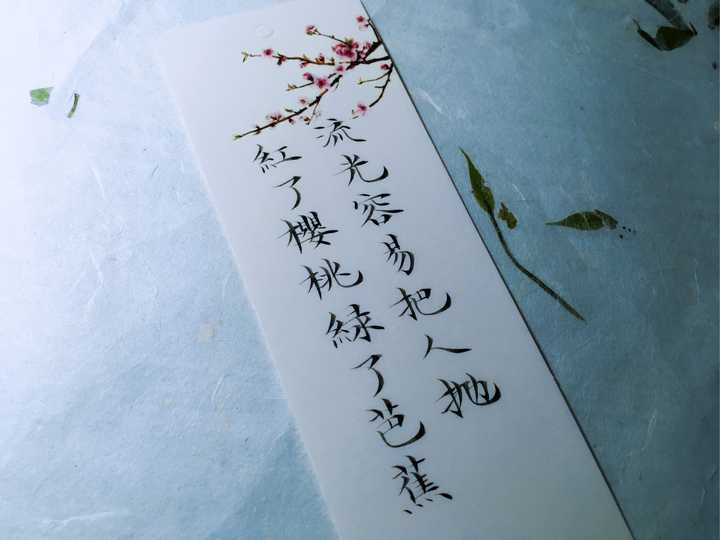 流光容易把人抛
紅了櫻桃綠了芭蕉